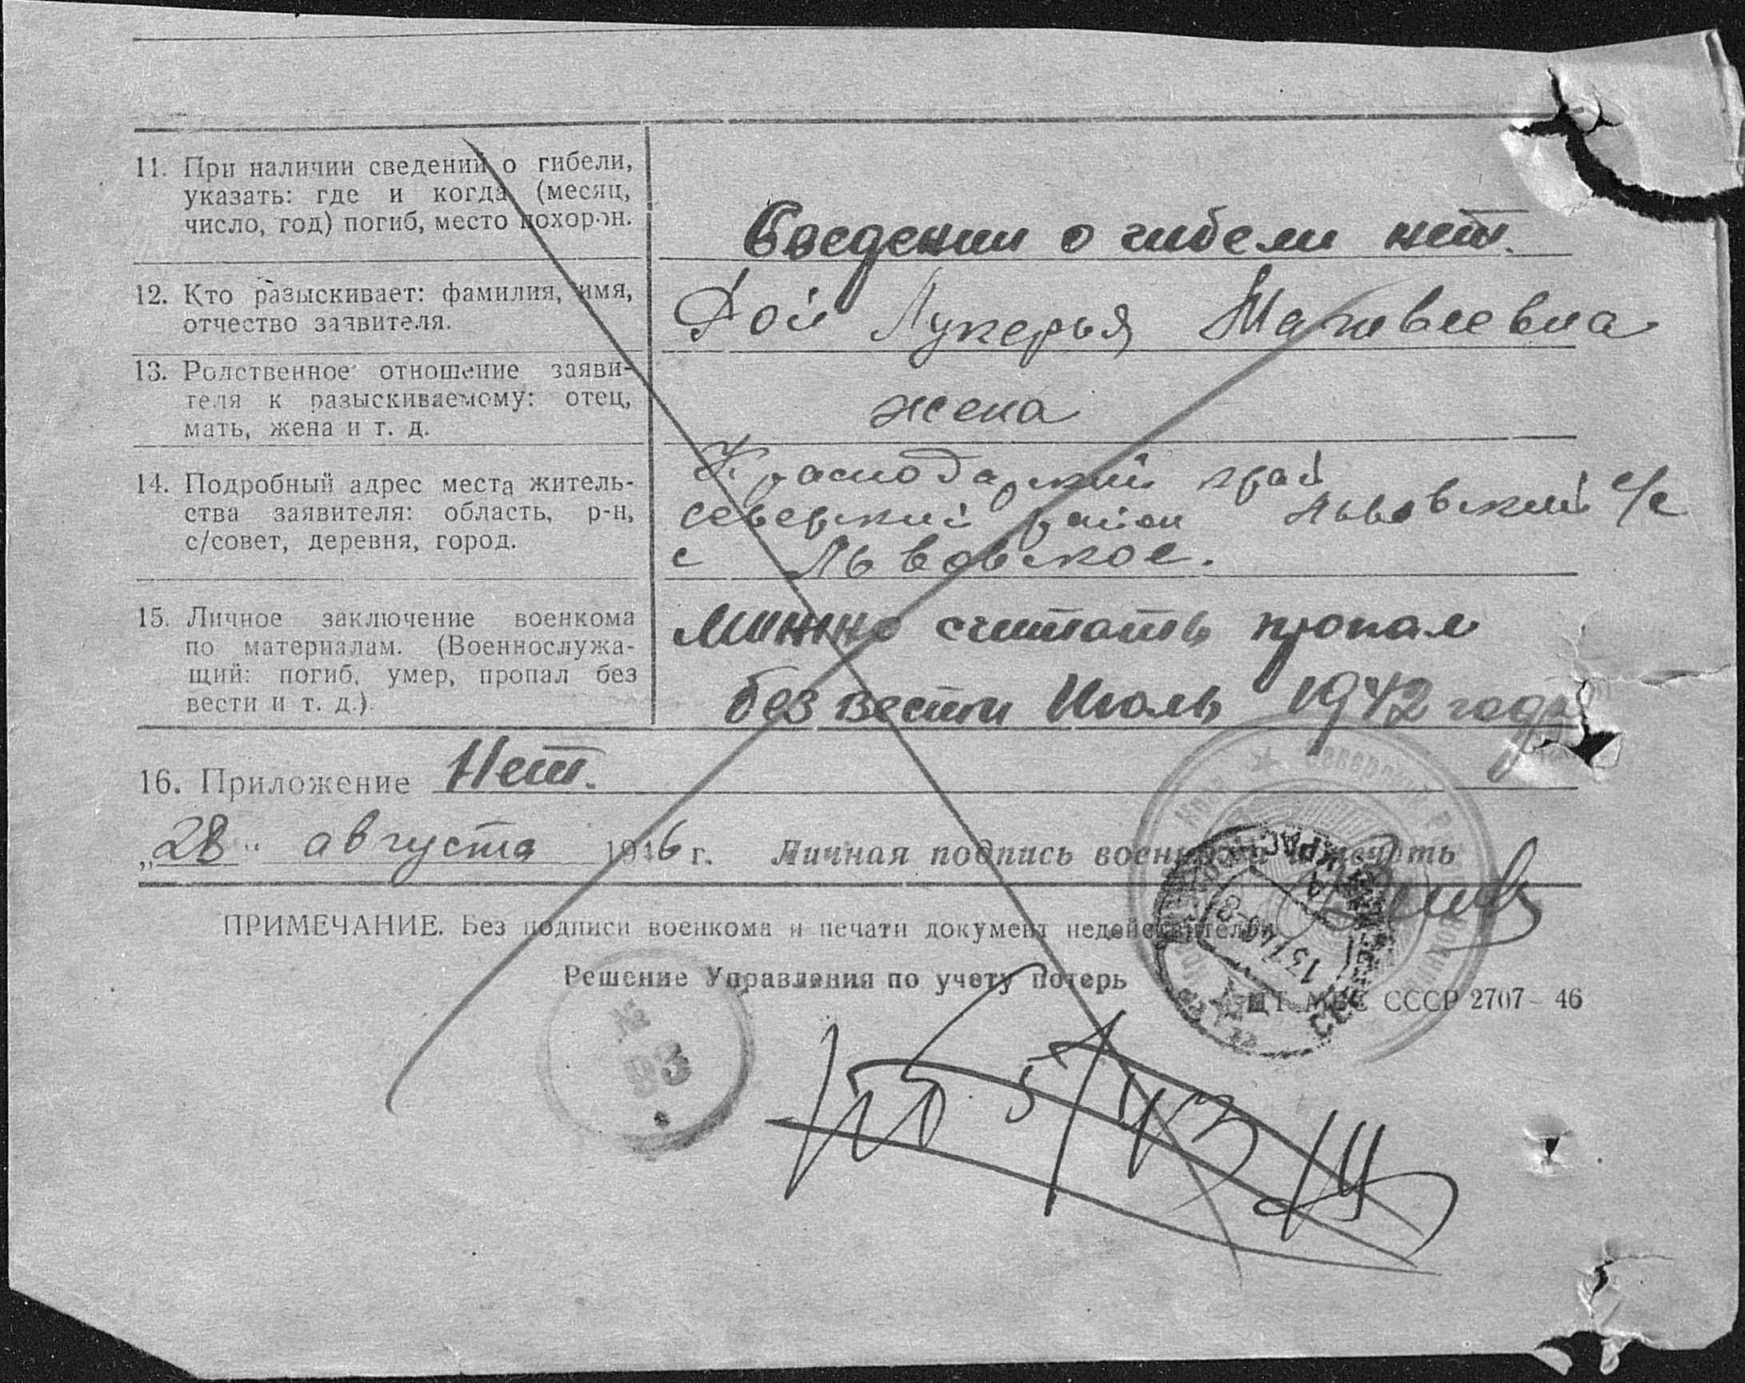 11. При наличии сведений о гибели,
указать: где и когда (месяц,
число, год) погиб, место похорон.
Сведении о гибели нет.
12. Кто разыскивает: фамилия, имя,
отчество заявителя.
Дой Лукерья Матвеевна
13. Родственное отношение заяви-
теля к разыскиваемому: отец,
мать, жена и т. д.
жена
14. Подробный адрес места житель-
ства заявителя: область, р-н,
с/совет, деревня, город.
Краснодарский край
Северский район Львовский с/с
с Львовское.
15. Личное заключение военкома
по материалам. (Военнослужа-
щий: погиб, умер, пропал без
вести и т. д.).
Можно считать пропал
без вести Июль 1942 году
16. Приложение Нет.
„28" августа 1946 г. Личная подпись военкома и печать
ПРИМЕЧАНИЕ. Без подписи военкома и печати документ недействителен
Решение Управления по учету потерь
ЦТ МВС СССР 2707—46
№
93